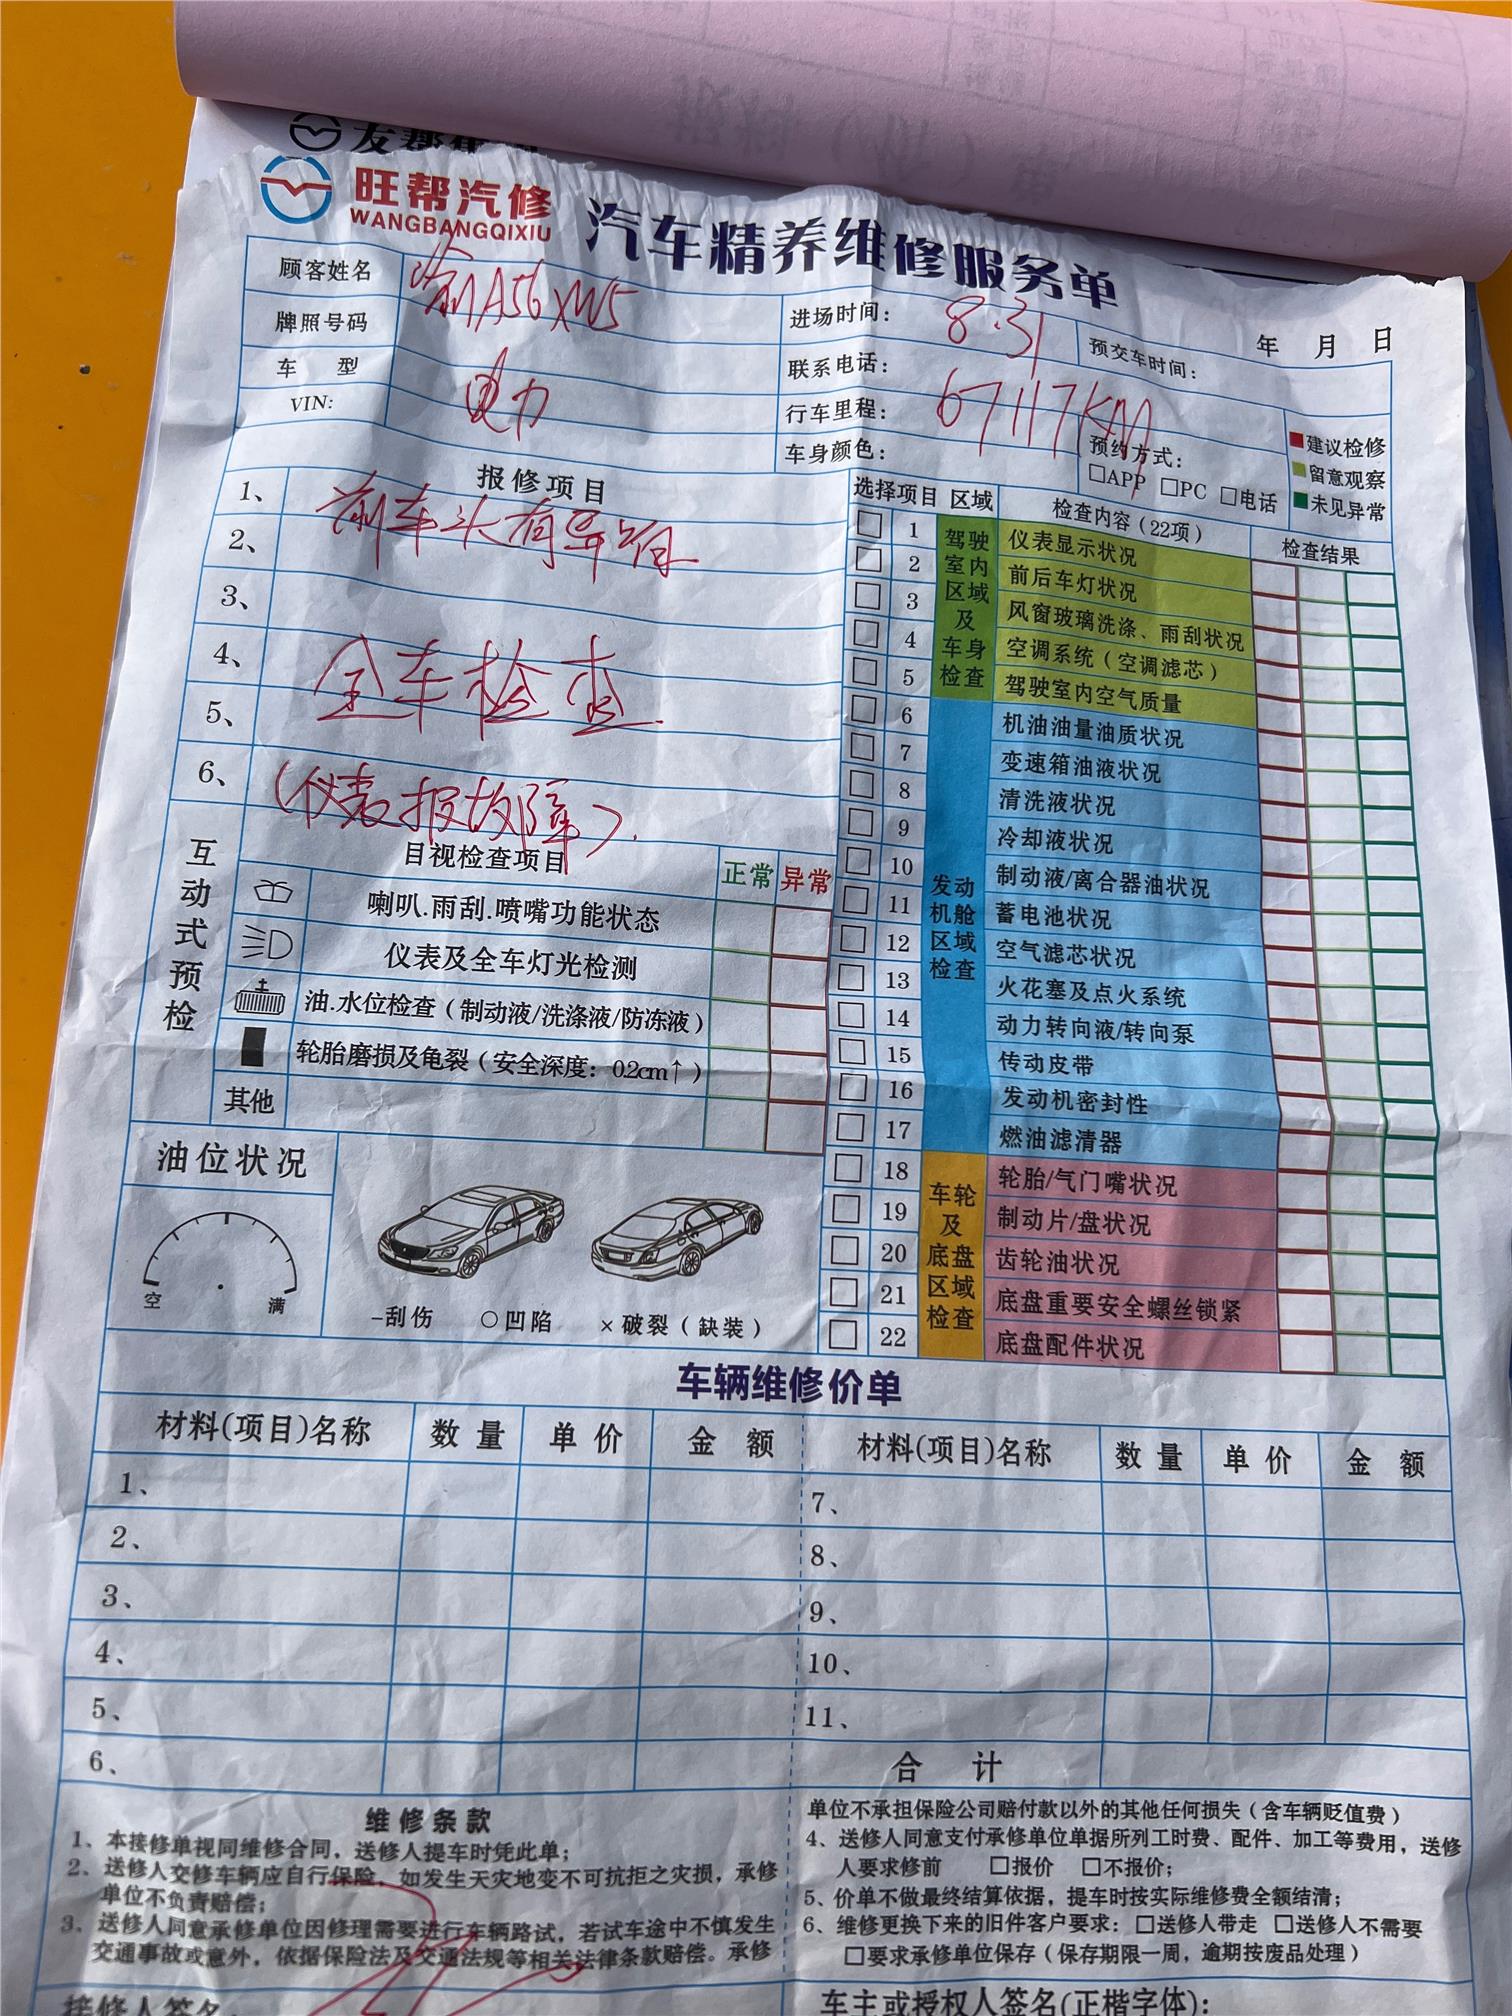 旺帮汽修
WANGBANGQIXIU
汽车精养维修服务单
顾客姓名
渝A56XW5
进场时间：
8.31
预交车时间：
年 月 日
牌照号码
联系电话：
车 型
电力
行车里程：
67117KM
VIN:
车身颜色：
预约方式：
□APP □PC □电话
建议检修
留意观察
未见异常
报修项目
1、
前车头有异响
2、
3、
4、
全车检查
5、
6、
(仪表报故障).
选择项目 区域 检查内容（22项） 检查结果
驾驶室内区域及车身检查
1 仪表显示状况
2 前后车灯状况
3 风窗玻璃洗涤、雨刮状况
4 空调系统（空调滤芯）
5 驾驶室内空气质量
发动机舱区域检查
6 机油油量油质状况
7 变速箱油液状况
8 清洗液状况
9 冷却液状况
10 制动液/离合器油状况
11 蓄电池状况
12 空气滤芯状况
13 火花塞及点火系统
14 动力转向液/转向泵
15 传动皮带
16 发动机密封性
17 燃油滤清器
车轮及底盘区域检查
18 轮胎/气门嘴状况
19 制动片/盘状况
20 齿轮油状况
21 底盘重要安全螺丝锁紧
22 底盘配件状况
互动式预检
目视检查项目 正常 异常
喇叭.雨刮.喷嘴功能状态
仪表及全车灯光检测
油.水位检查（制动液/洗涤液/防冻液）
轮胎磨损及龟裂（安全深度：0.2cm↑）
其他
油位状况
空 满
-刮伤 ○凹陷 ×破裂（缺装）
车辆维修价单
材料(项目)名称 数量 单价 金额 材料(项目)名称 数量 单价 金额
1、 7、
2、 8、
3、 9、
4、 10、
5、 11、
6、 合计
维修条款
1、本接修单视同维修合同，送修人提车时凭此单；
2、送修人交修车辆应自行保险，如发生天灾地变不可抗拒之灾损，承修
单位不负责赔偿；
3、送修人同意承修单位因修理需要进行车辆路试，若试车途中不慎发生
交通事故或意外，依据保险法及交通法规等相关法律条款赔偿。承修
单位不承担保险公司赔付款以外的其他任何损失（含车辆贬值费）
4、送修人同意支付承修单位单据所列工时费、配件、加工等费用，送修
人要求修前 □报价 □不报价；
5、价单不做最终结算依据，提车时按实际维修费全额结清；
6、维修更换下来的旧件客户要求：□送修人带走 □送修人不需要
□要求承修单位保存（保存期限一周，逾期按废品处理）
接修人签名：
车主或授权人签名(正楷字体)：